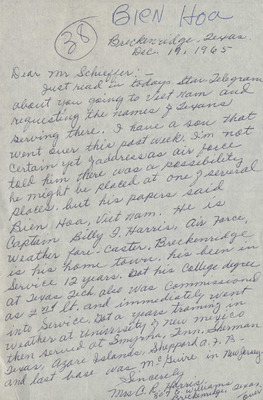 38 Bien Hoa
Breckenridge, Texas.
Dec. 19, 1965
Dear Mr Scheffer: -
Just read in todays Star Telegram
about you going to Viet Nam and
requesting the names of Texans
serving there. I have a son that
went over this past week, I'm not
certain yet of address as air force
told him there was a possibility
he might be placed at one of several
places, but his papers said
Bien Hoa, Viet nam. He is
Captain Billy J. Harris, Air Force,
weather fore-caster, Breckenridge
is his home town. his been in
Service 12 years. Got his College degree
at Texas Tech. also was Commissioned
as 2nd Lt. and immediately went
into Service. Got a years training in
weather at University of New Mexico
then served at Smyrna, Tenn. Sherman
Texas, Azore Islands, Sheppard A. F. B-
and last base was McGuire in New Jersey
Sincerely
Mrs. O. R. Harris
E. Williams
Breckenridge, Texas.
over